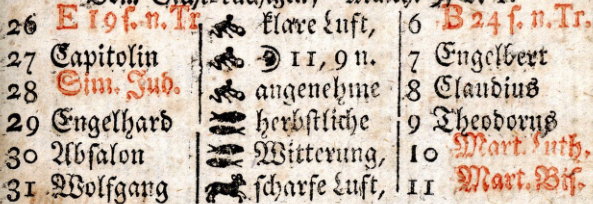 26 E 19 ſ. n. Tr. klare Luft, 6 B 24 ſ. n. Tr.
27 Capitolin ☽ 11, 9 n. 7 Engelbert
28 Sim. Jud. angenehme 8 Claudius
29 Engelhard herbſtliche 9 Theodorus
30 Abſalon Witterung, 10 Mart. Luth.
31 Wolfgang ſcharfe Luft, 11 Mart. Biſ.